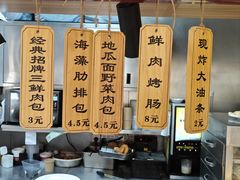 经典招牌三鲜肉包
3元
海藻肋排包
4.5元
地瓜面野菜肉包
4.5元
鲜肉烤肠
8元
现炸大油条
元